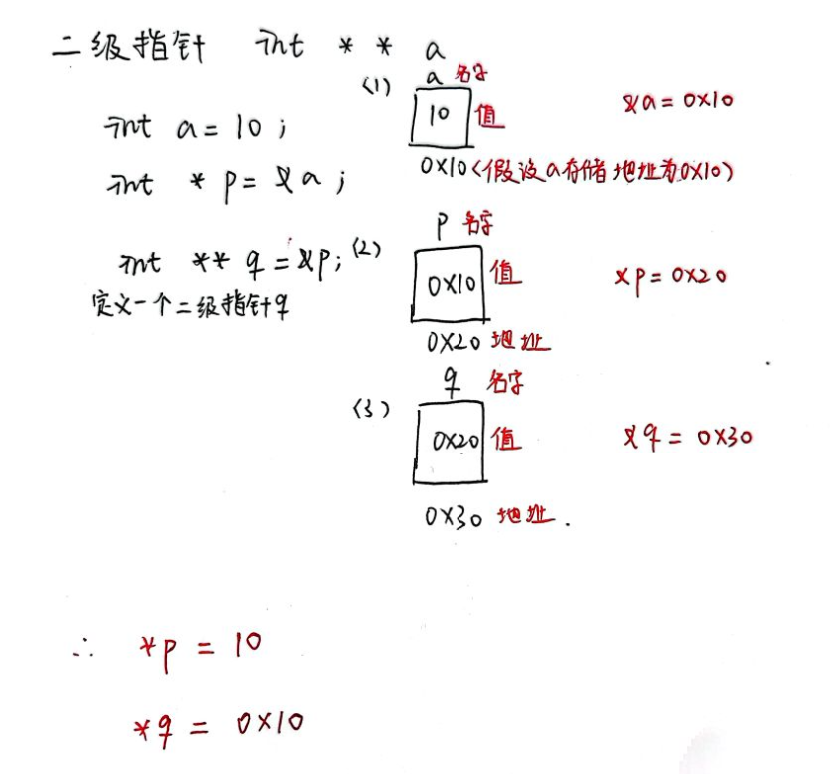 二级指针 int * * a
(1) a 名字
int a = 10 ;
10 值
&a = 0X10
int * p = &a ;
0X10 (假设a存储地址为0X10)
p 名字
int ** q = &p;
(2) 0X10 值
&p = 0X20
定义一个二级指针q
0X20 地址
q 名字
(3)
0X20 值
&q = 0X30
0X30 地址.
∴ *p = 10
*q = 0X10